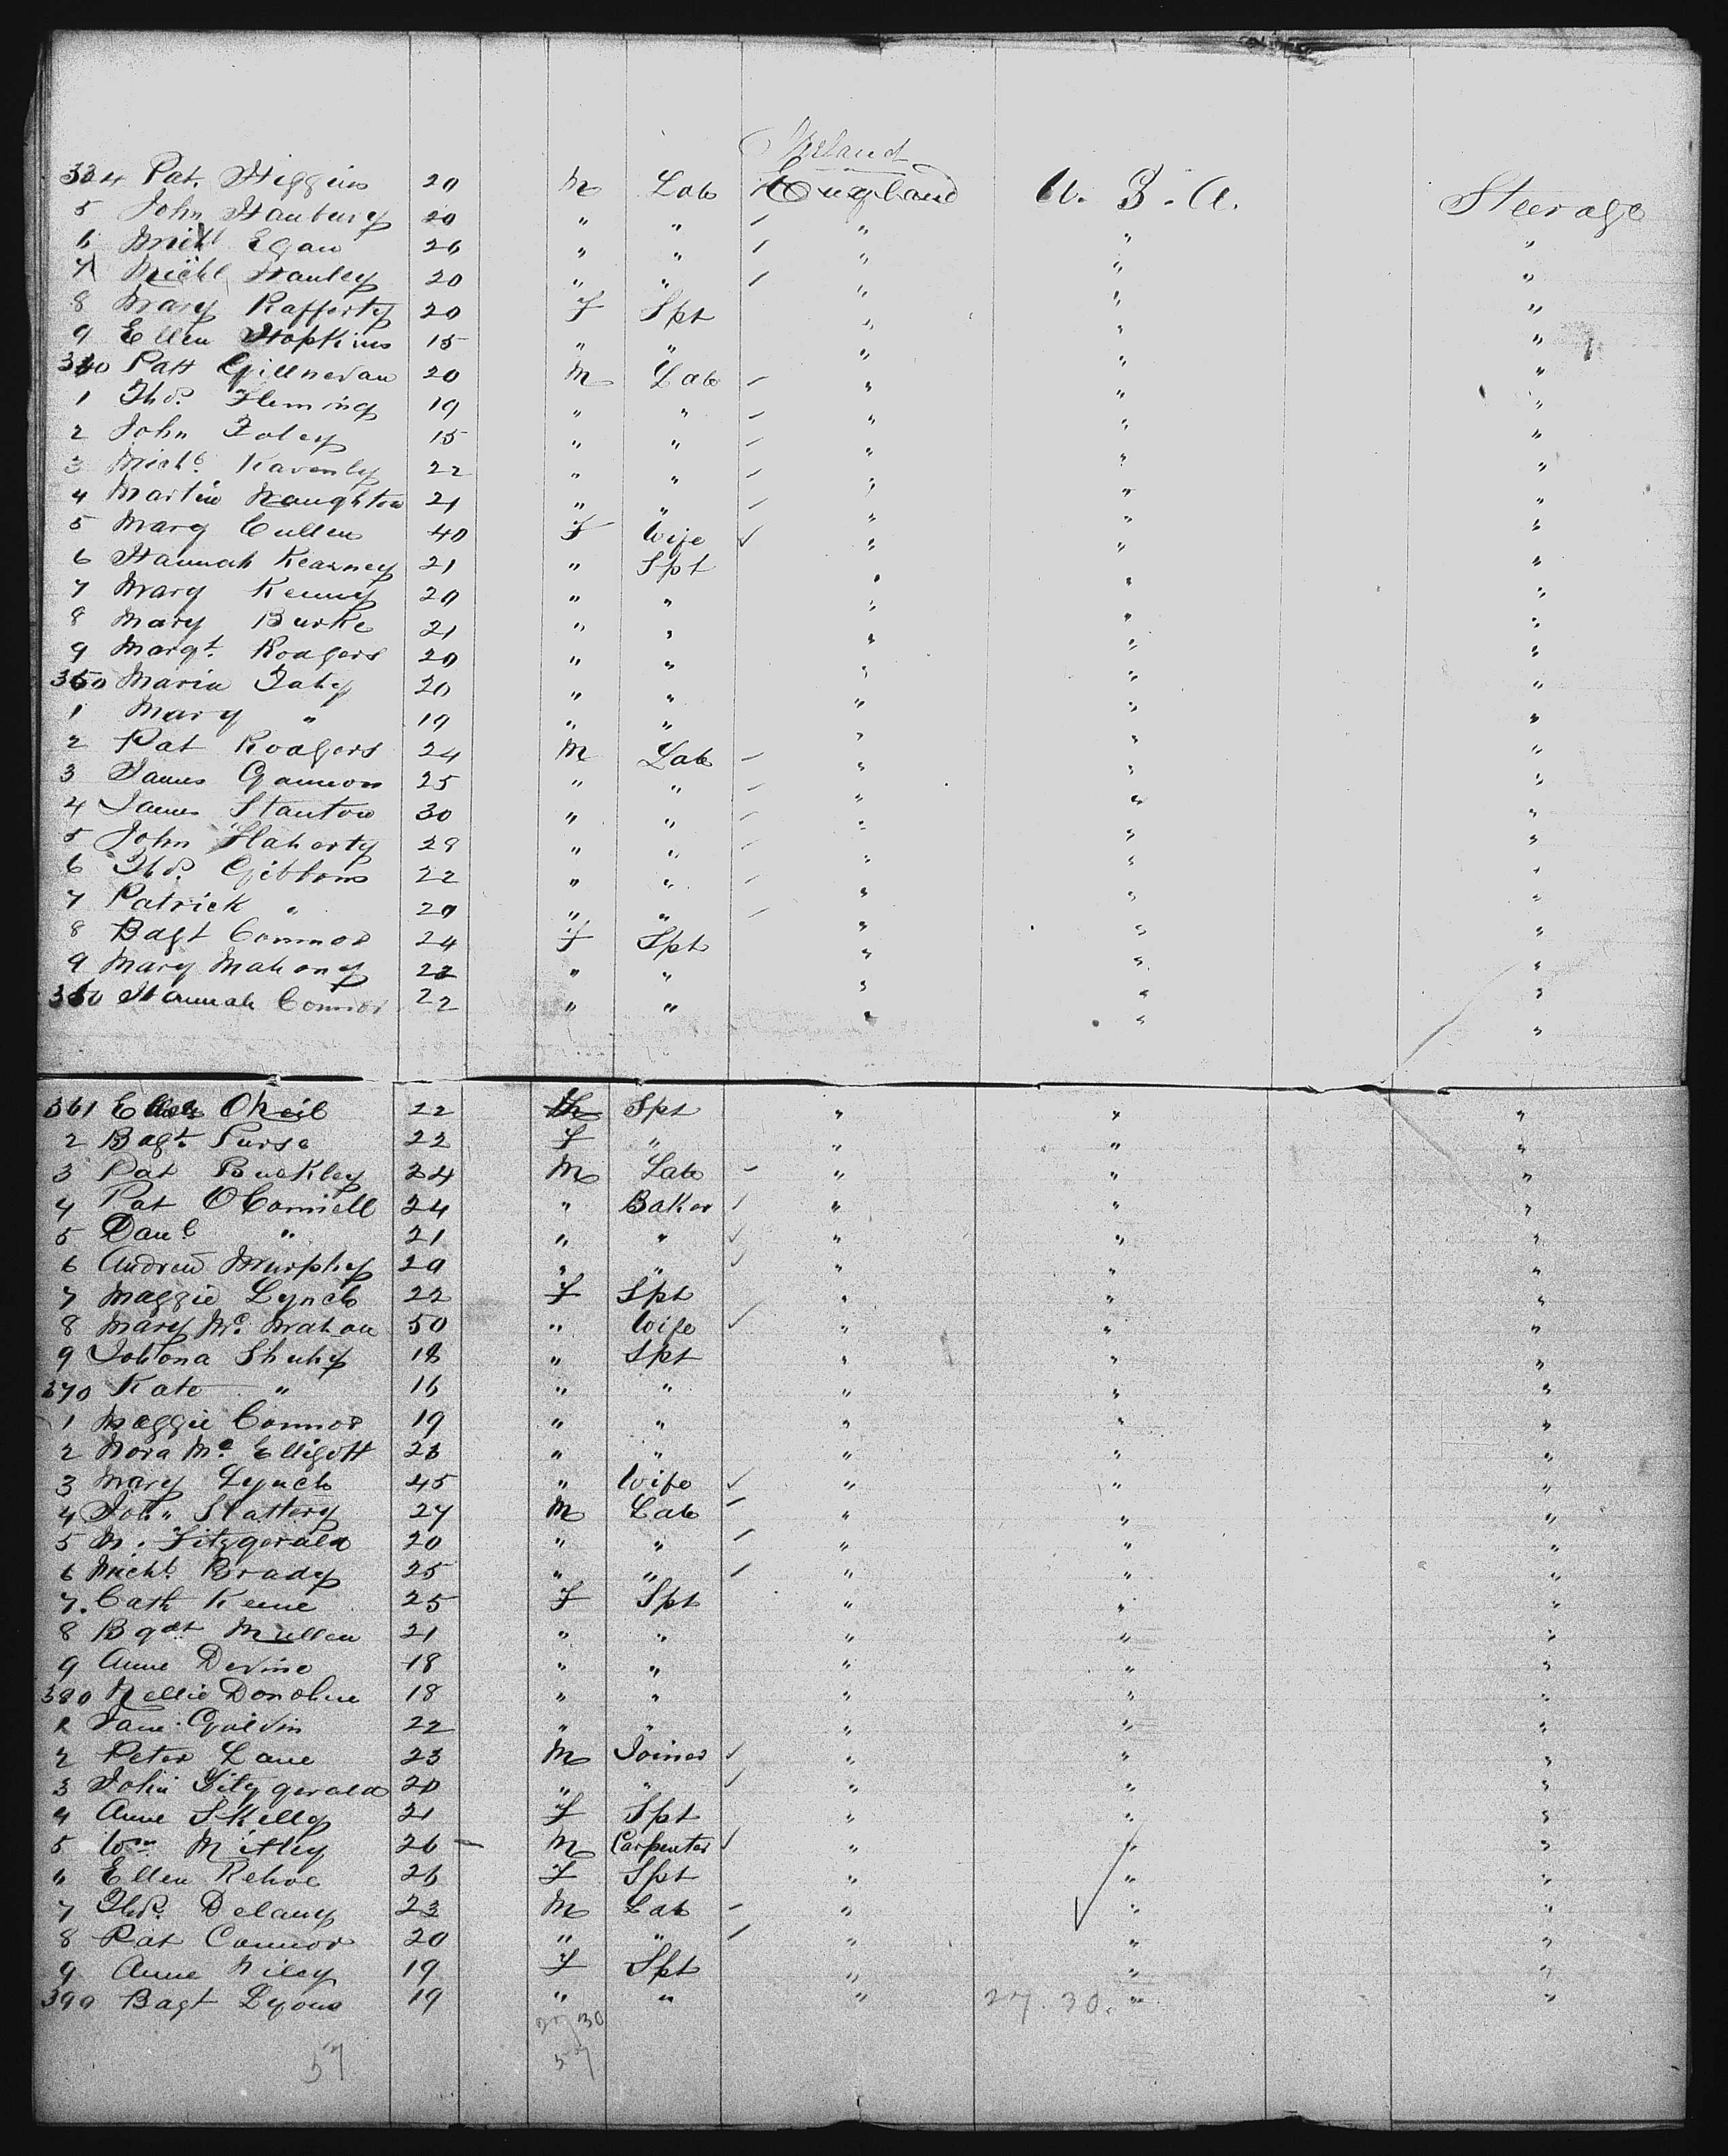 Ireland
334 Pat. Higgins 20 M Lab England U. S. A. Steerage
5 John Hanbury 20 " " " " "
6 Michl Egan 26 " " " " "
7 Michl Hanley 20 " " " " "
8 Mary Rafferty 20 F Spt " " "
9 Ellen Hopkins 15 " " " " "
340 Patt Gillnevan 20 M Lab " " "
1 Thos. Fleming 19 " " " " "
2 John Foley 15 " " " " "
3 Michl. Kavenly 22 " " " " "
4 Martin Naughton 21 " " " " "
5 Mary Cullen 40 F Wife " " "
6 Hannah Kearney 21 " Spt " " "
7 Mary Kenny 20 " " " " "
8 Mary Burke 21 " " " " "
9 Margt. Rodgers 20 " " " " "
350 Maria Fahy 20 " " " " "
1 Mary " 19 " " " " "
2 Pat Rodgers 24 M Lab " " "
3 James Gannon 25 " " " " "
4 James Stanton 30 " " " " "
5 John Flaherty 28 " " " " "
6 Thos. Gibbons 22 " " " " "
7 Patrick " 20 " " " " "
8 Bagt Connor 24 F Spt " " "
9 Mary Mahony 22 " " " " "
360 Hannah Connor 22 " " " " "
361 ONeil 22 Spt " " "
2 Bagt. Purse 22 F " " " "
3 Pat Buckley 24 M Lab " " "
4 Pat OConnell 24 " Baker " " "
5 Danl " 21 " " " " "
6 Andrew Murphy 20 " " " " "
7 Maggie Lynch 22 F Spt " " "
8 Mary Mc. Mahon 50 " Wife " " "
9 Johona Shuhy 18 " Spt " " "
370 Kate " 16 " " " " "
1 Maggie Connor 19 " " " " "
2 Nora Mc Elligott 23 " " " " "
3 Mary Lynch 45 " Wife " " "
4 Joh" Slattery 27 M Lab " " "
5 M. Fitzgerald 20 " " " " "
6 Michl. Brady 25 " " " " "
7. Cath Keene 25 F Spt " " "
8 Bgdt Mullen 21 " " " " "
9 Anne Devine 18 " " " " "
380 Nellie Donohue 18 " " " " "
1 Jane Galvin 22 " " " " "
2 Peter Lane 23 M Joiner " " "
3 John Fitzgerald 20 " " " " "
4 Anne Skelly 21 F Spt " " "
5 Wm Mitley 26 M Carpenter " " "
6 Ellen Kehoe 26 F Spt " " "
7 Thos. Delany 23 M Lab " " "
8 Pat Connor 20 " " " " "
9 Anne Niley 19 F Spt " " "
390 Bagt Lyons 19 " " " 27. 30. " "
27 30
57 57